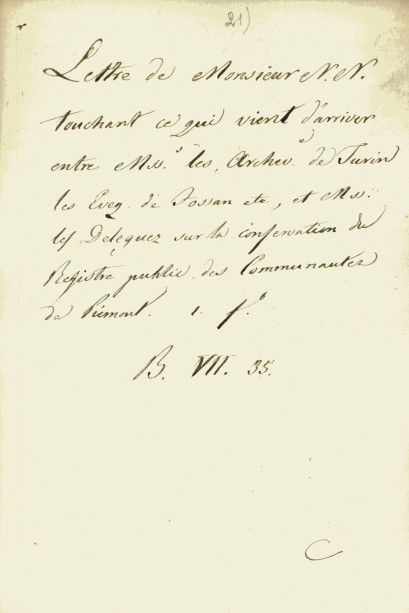 21)
Lettre de Monsieur N. N.
touchant ce qui vient d'arriver
entre Mss.rs les Archev.s de Turin
les Eveq. de Fossan etc, et Mss.
les Deleguez sur la confervation du
Registre public des Communautez
de Piémont. 1. f.o
B. VII. 35.
C